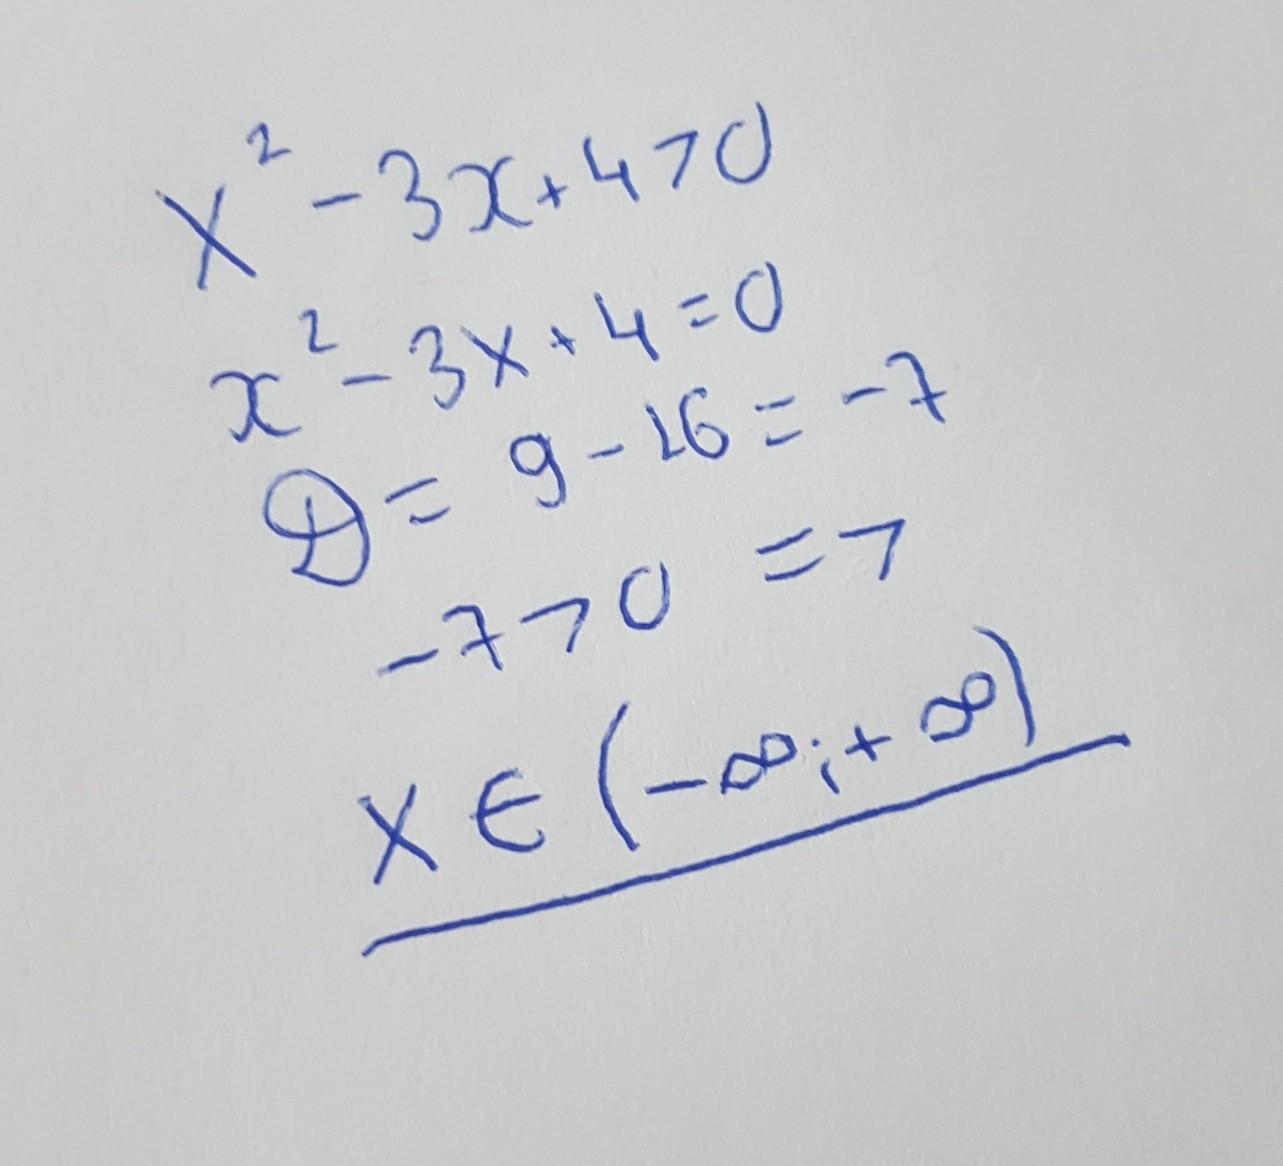 x² - 3x + 4 > 0
x² - 3x + 4 = 0
D = 9 - 16 = -7
-7 > 0 =>
x ∈ (-∞; +∞)